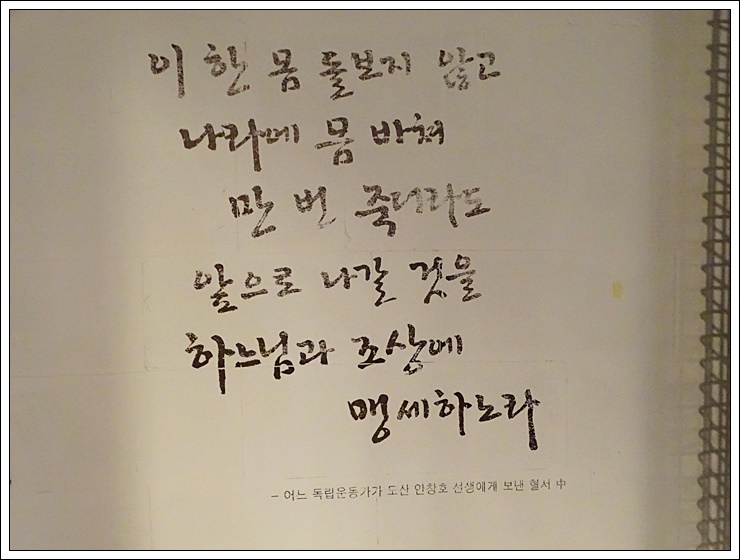 이 한 몸 돌보지 않고
나라에 몸 바쳐
만 번 죽더라도
앞으로 나갈 것을
하느님과 조상에
맹세하노라
- 어느 독립운동가가 도산 안창호 선생에게 보낸 혈서 中